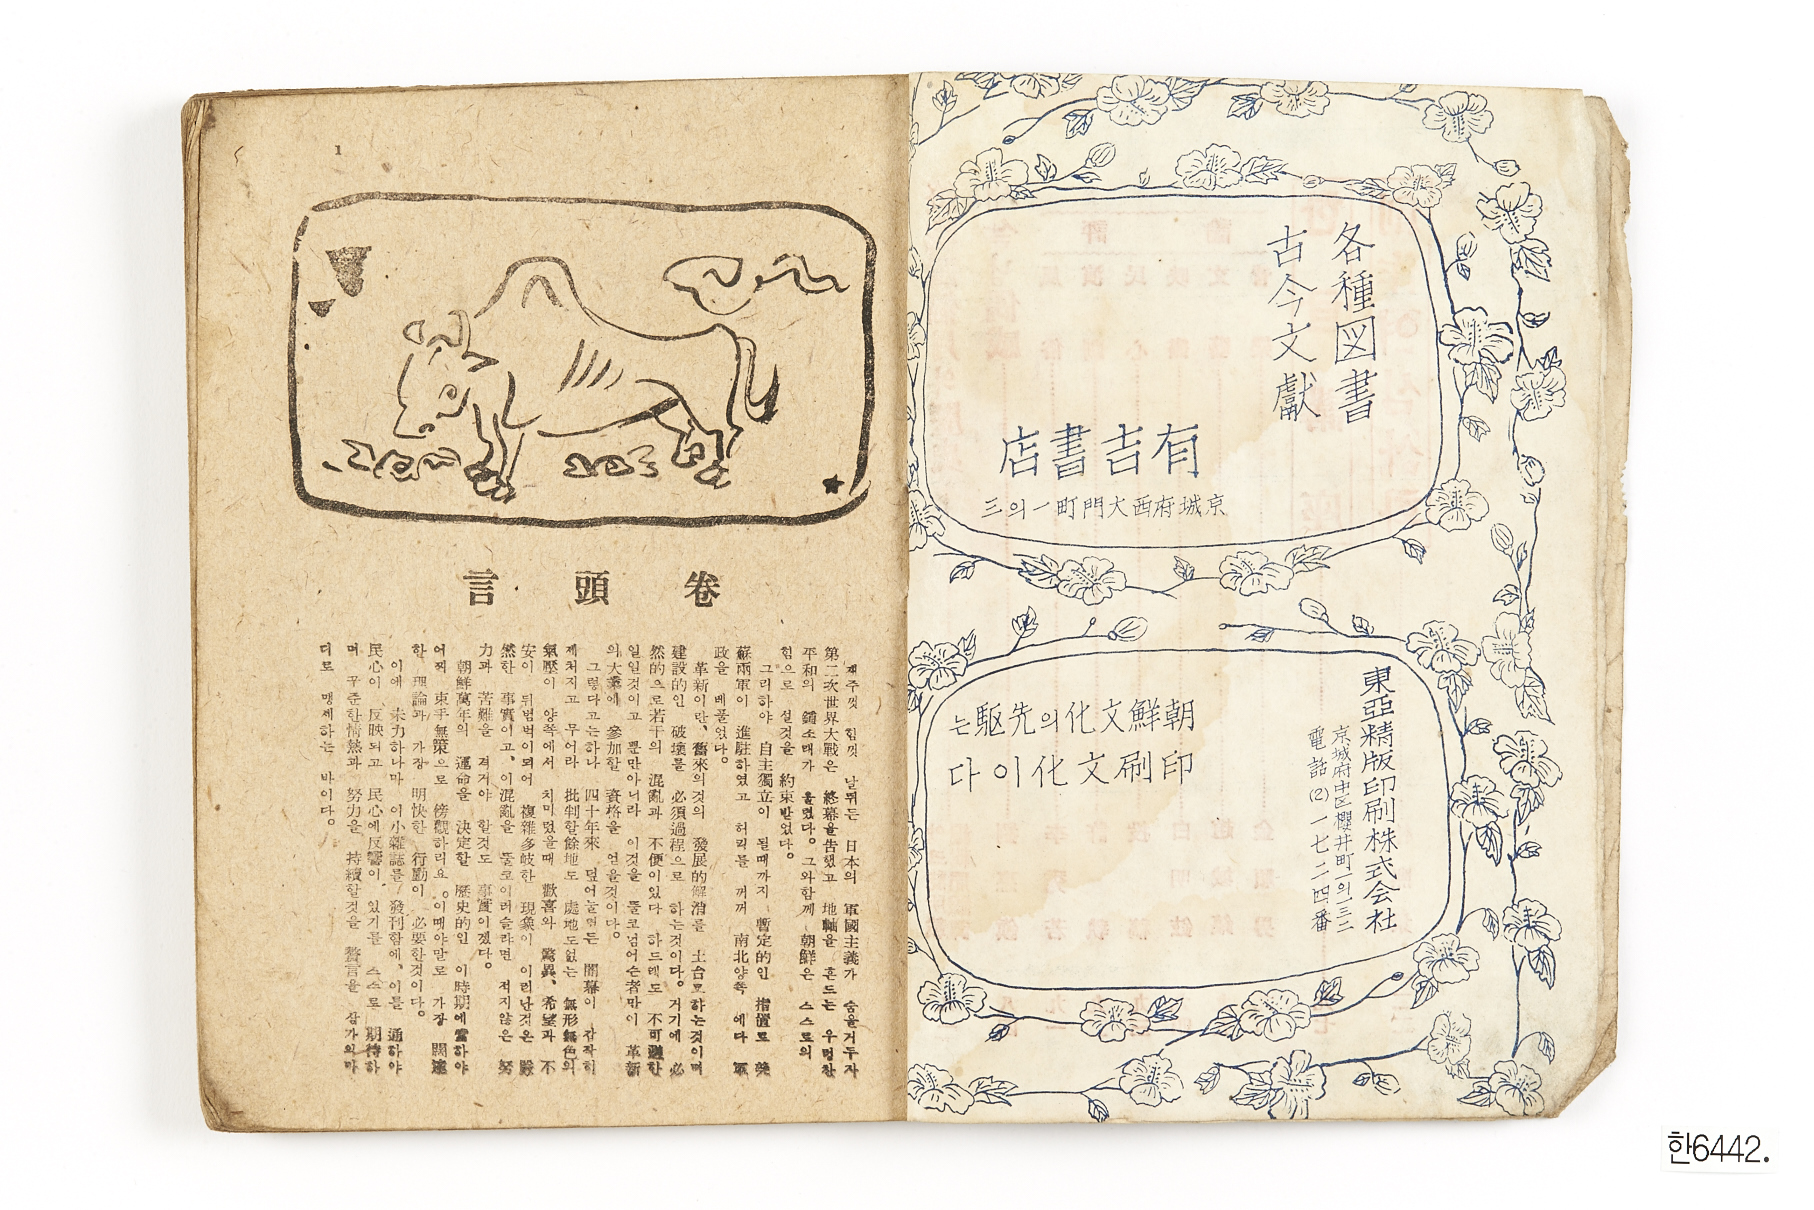 各種図書
古今文獻
有吉書店
京城府西大門町一의三
東亞精版印刷株式会社
京城府中区櫻井町一의一三二
電話(2)一七二四番
朝鮮文化의先駆는
印刷文化이다
1
卷頭言
재주껏 힘껏 날뛰든 日本의 軍國主義가 숨을거두자
第二次世界大戰은 終幕을告했고 地軸을 흔드는 우렁찬
平和의 鐘소래가 울렸다。그와함께 朝鮮은 스스로의
힘으로 설것을 約束받었다。
그리하야 自主獨立이 될때까지 暫定的인 措置로 美
蘇兩軍이 進駐하였고 허리를 꺼꺼 南北양쪽 에다 軍
政을 베풀었다。
革新이란、舊來의것의 發展的解消를 土台로하는것이며
建設的인 破壞를 必須過程으로 하는것이다。거기에 必
然的으로若干의 混亂과 不便이있다 하드래도 不可避한
일일것이고 뿐만아니라 이것을 뚤코넘어슨者만이 革新
의大業에 參加할 資格을 얻을것이다。
그렇다고는하나 四十年來 덮어눌렀든 闇幕이 갑작히
제처지고 무어라 批判할餘地도 處地도없는 無形無色의
氣壓이 양쪽에서 치미렀을때 歡喜와 驚異、希望과 不
安이 뒤범벅이되어 複雜多岐한 現象이 이러난것은 嚴
然한 事實이고、이混亂을 뚤코이러슬랴면 적지않은 努
力과 苦難을 겨거야 할것도 事實이겠다。
朝鮮萬年의 運命을 決定할 歷史的인 이時期에當하야
어찌 束手無策으로 傍觀하리요。이때야말로 가장 闊達
한 理論과 가장 明快한 行動이 必要한것이다。
이에 未力하나마 이小雜誌를 發刊함에、이를 通하야
民心이 反映되고 民心에反響이 있기를 스스로 期待하
며 꾸준한情熱과 努力을 持續할것을
디로 맹세하는 바이다。
한6442.